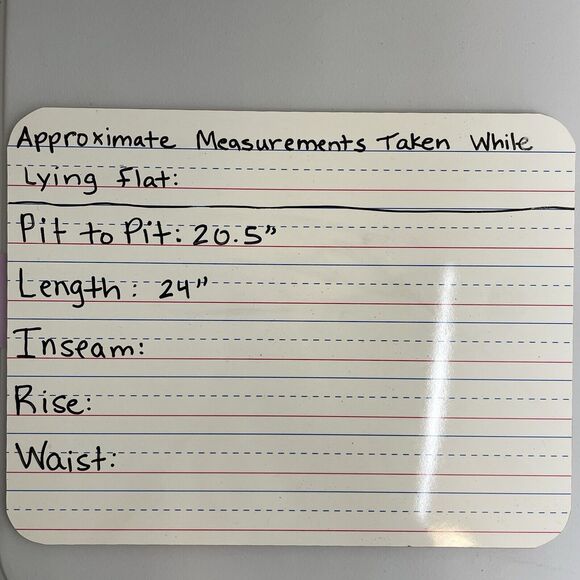 Approximate Measurements Taken While
Lying flat:
Pit to Pit: 20.5"
Length: 24"
Inseam:
Rise:
Waist: